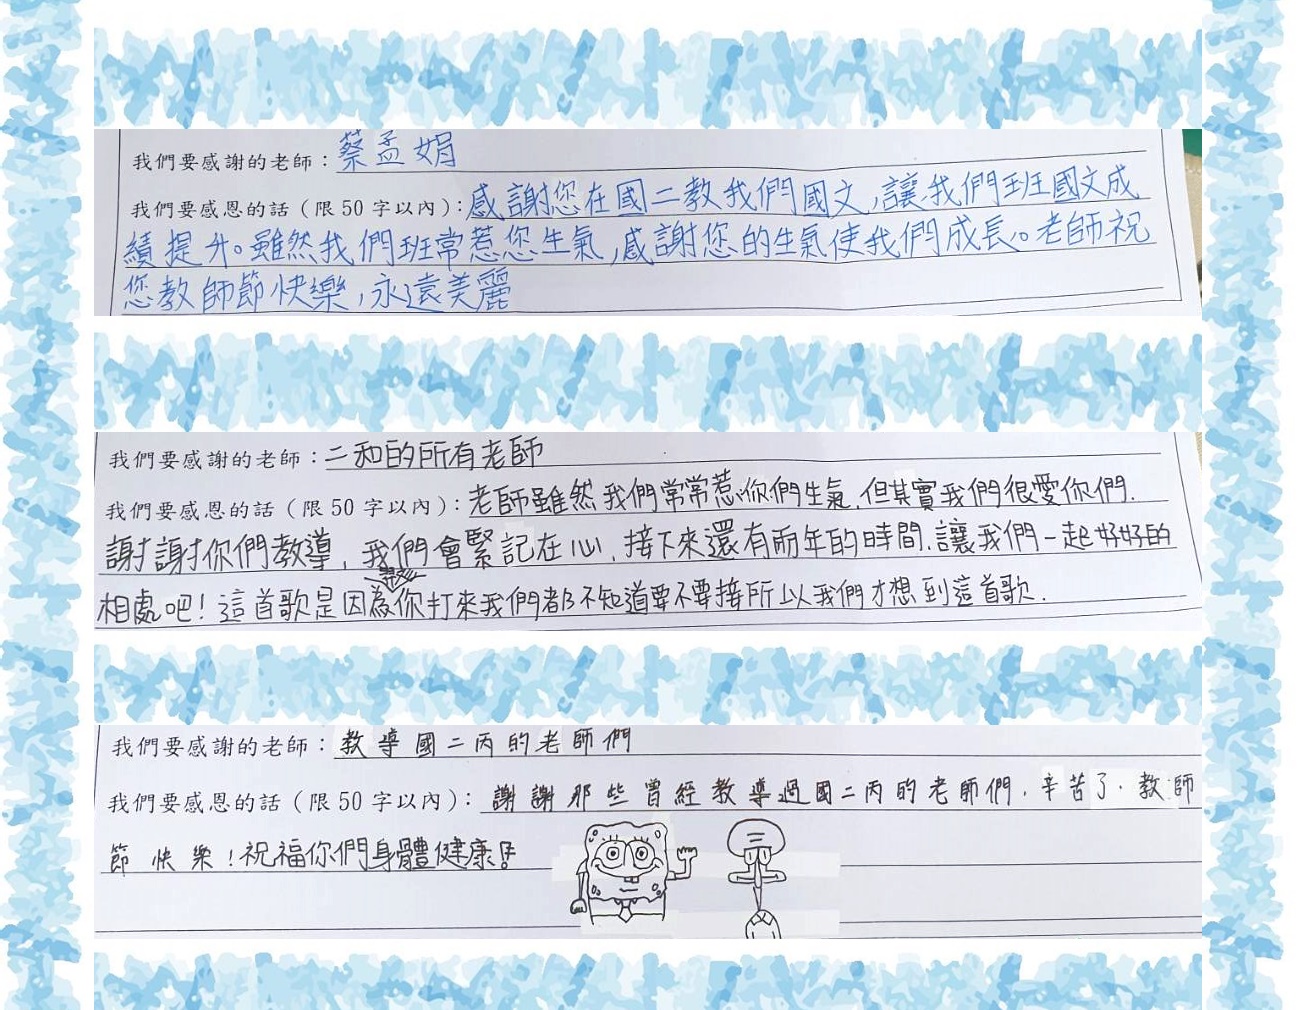 我們要感謝的老師：蔡孟娟
我們要感恩的話（限 50 字以內）：感謝您在國二教我們國文，讓我們班國文成
績提升。雖然我們班常惹您生氣，感謝您的生氣使我們成長。老師祝
您教師節快樂，永遠美麗
我們要感謝的老師：二和的所有老師
我們要感恩的話（限 50 字以內）：老師雖然我們常常惹你們生氣，但其實我們很愛你們.
謝謝你們教導，我們會緊記在心，接下來還有兩年的時間，讓我們一起好好的
相處吧！這首歌是因為你打來我們都不知道要不要接所以我們才想到這首歌.
我們要感謝的老師：教導國二丙的老師們
我們要感恩的話（限 50 字以內）：謝謝那些曾經教導過國二丙的老師們，辛苦了．教師
節快樂！祝福你們身體健康！